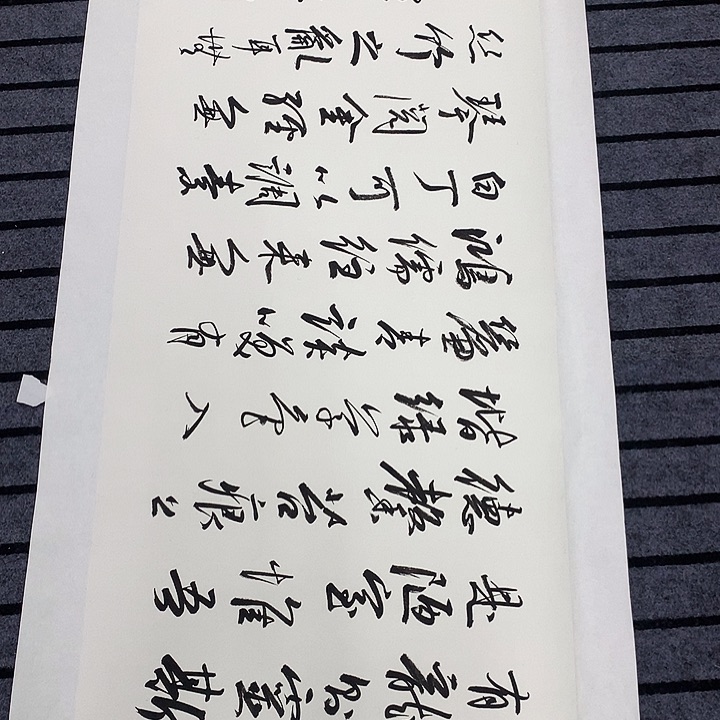 有龍則靈斯
是陋室惟吾
德馨苔痕上
階綠草色入
簾青談笑有
鴻儒往來無
白丁可以調素
琴閱金經無
絲竹之亂耳無